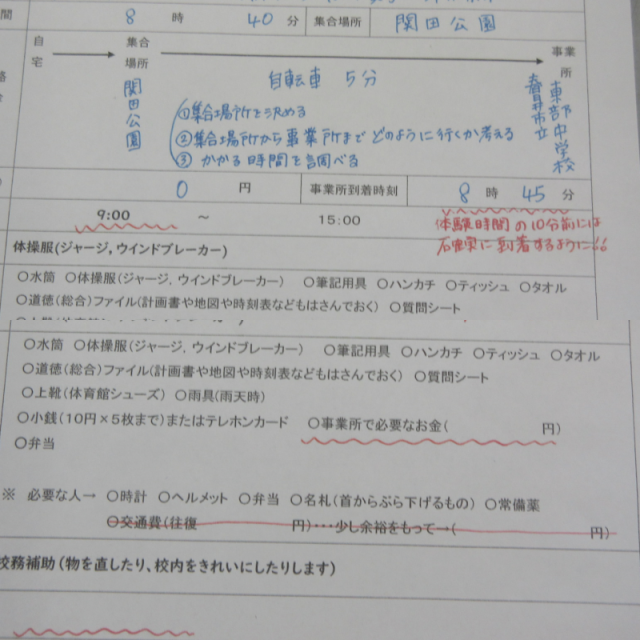 間 8 時 40 分 集合場所 関田公園
自宅 → 集合場所 → 事業所
関田公園
自転車 5分
春日井市立
東部中学校
①集合場所を決める
②集合場所から事業所までどのように行くか考える
③かかる時間を調べる
0 円 事業所到着時刻 8 時 45 分
9:00 ～ 15:00
体験時間の10分前には
確実に到着するように!!
体操服(ジャージ，ウインドブレーカー)
○水筒 ○体操服(ジャージ，ウインドブレーカー) ○筆記用具 ○ハンカチ ○ティッシュ ○タオル
○道徳(総合)ファイル(計画書や地図や時刻表などもはさんでおく) ○質問シート
○水筒 ○体操服(ジャージ，ウインドブレーカー) ○筆記用具 ○ハンカチ ○ティッシュ ○タオル
○道徳(総合)ファイル(計画書や地図や時刻表などもはさんでおく) ○質問シート
○上靴(体育館シューズ) ○雨具(雨天時)
○小銭(10円×5枚まで)またはテレホンカード ○事業所で必要なお金( 円)
○弁当
※ 必要な人→ ○時計 ○ヘルメット ○弁当 ○名札(首からぶら下げるもの) ○常備薬
○交通費(往復 円)･･･少し余裕をもって→( 円)
校務補助(物を直したり、校内をきれいにしたりします)